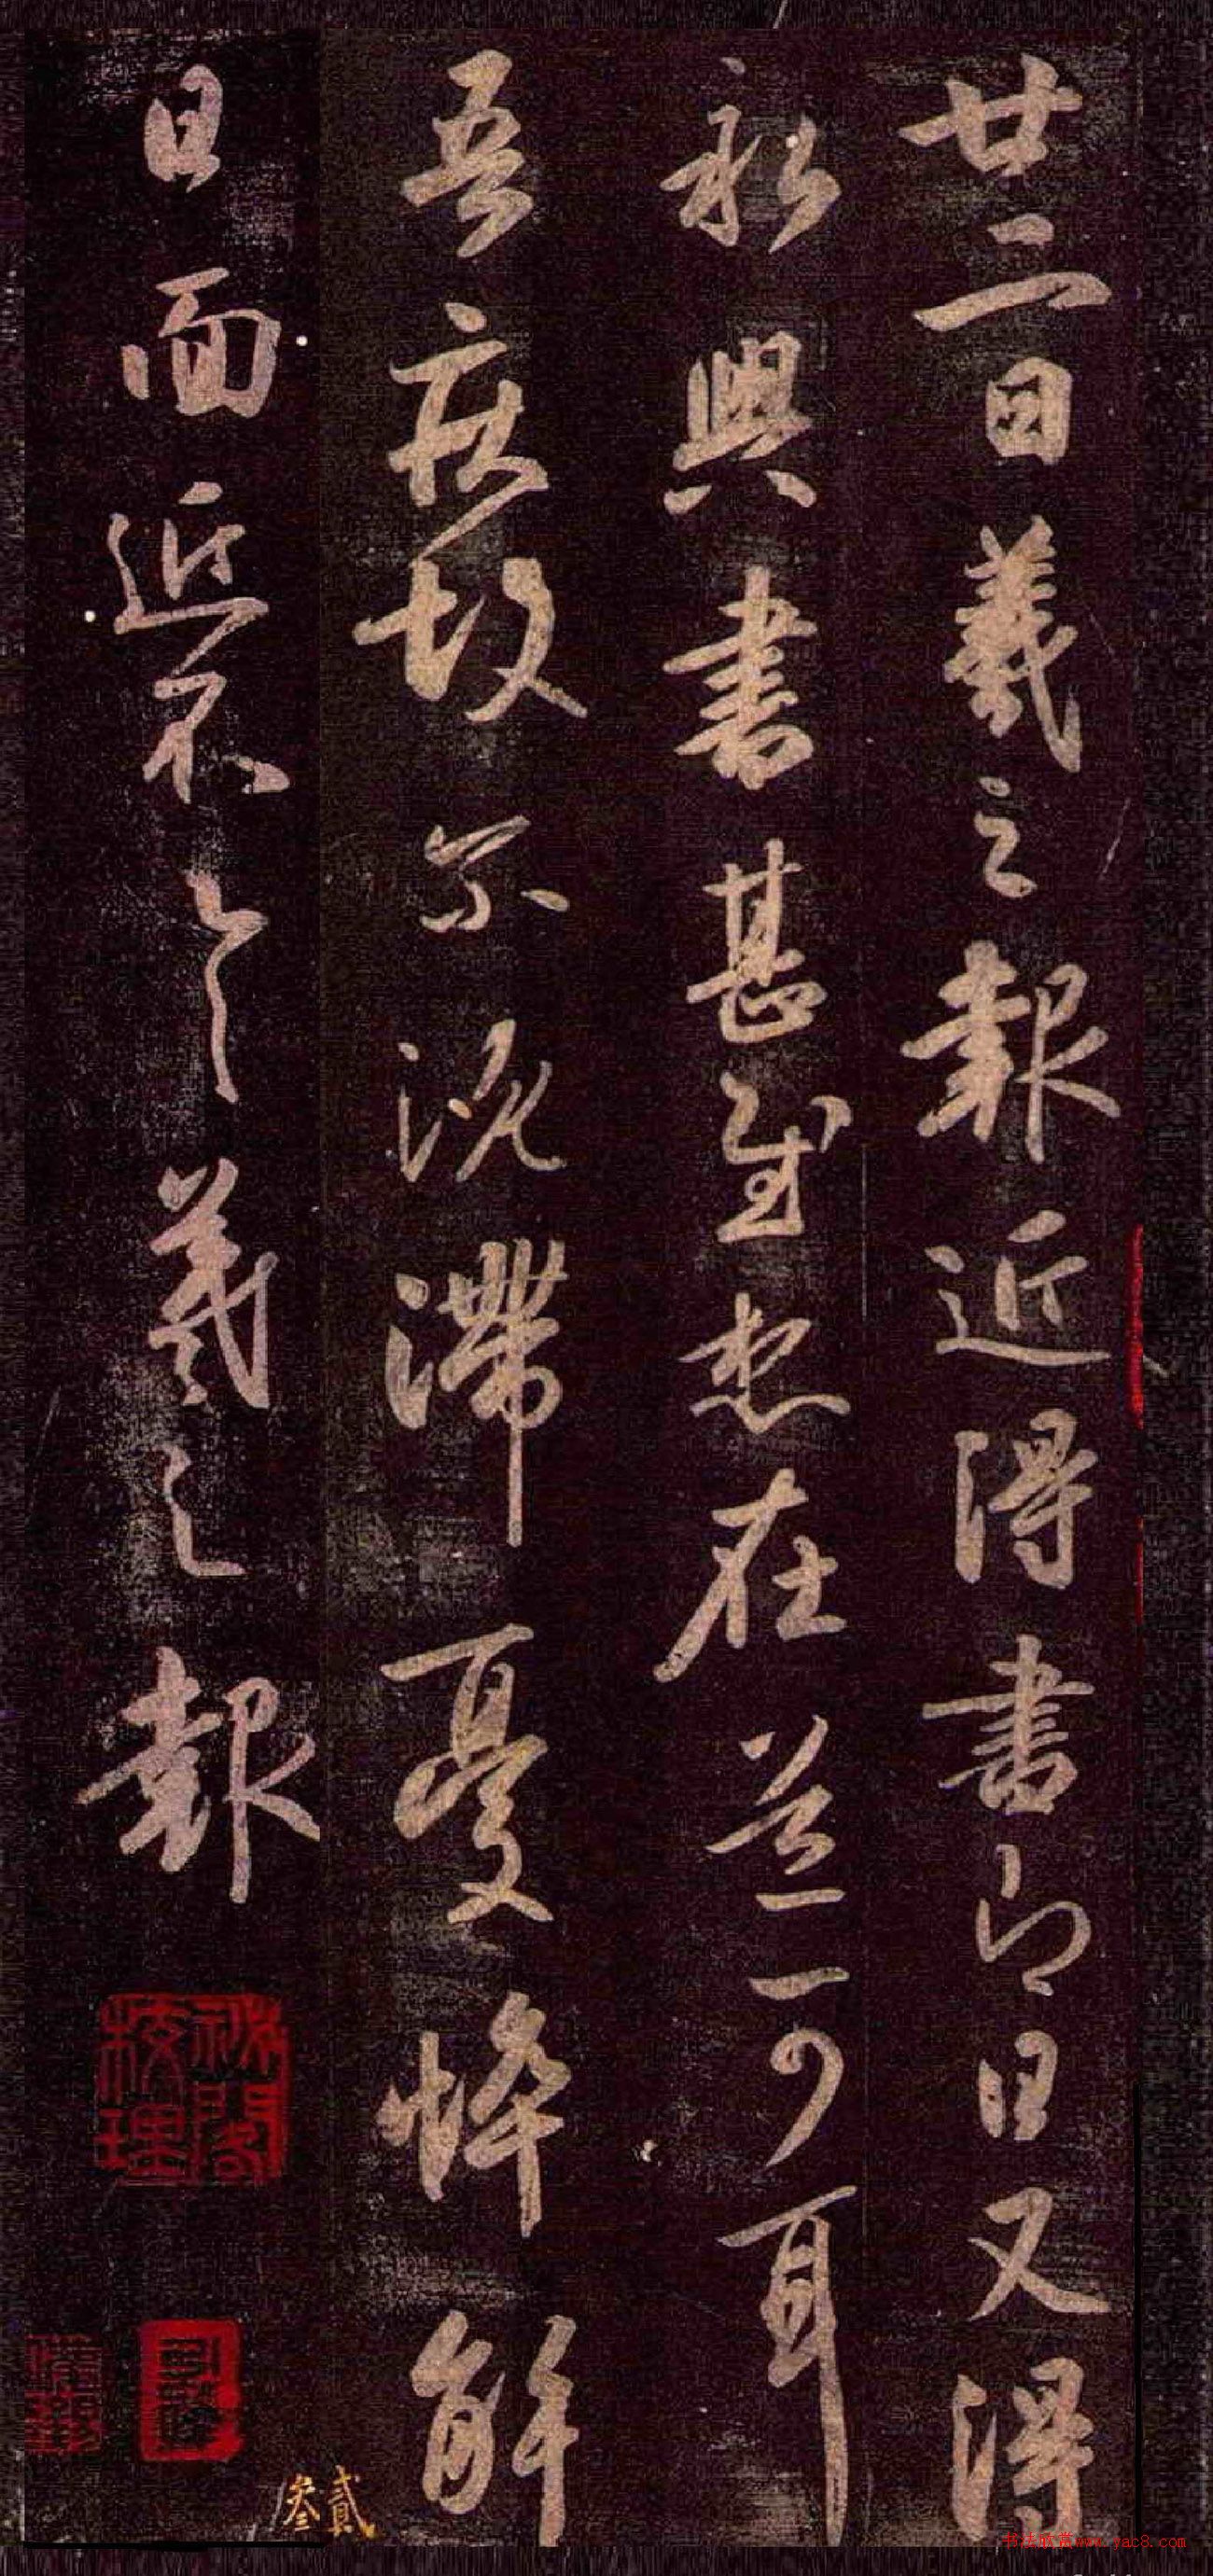 廿二日羲之報近得書即日又得
永興書甚慰想在道可耳
吾疾故爾沉滯憂悴解
日面近不具羲之報
秘閣校理
貳叁
书法欣赏www.yac8.com